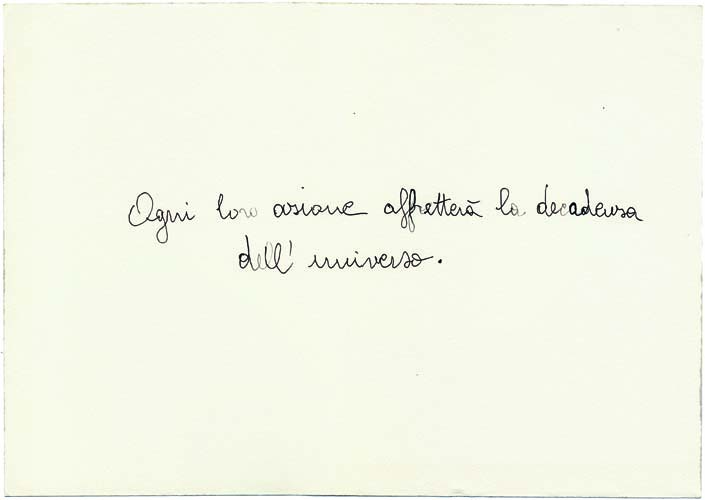 Ogni loro azione affretterà la decadenza
dell'universo.